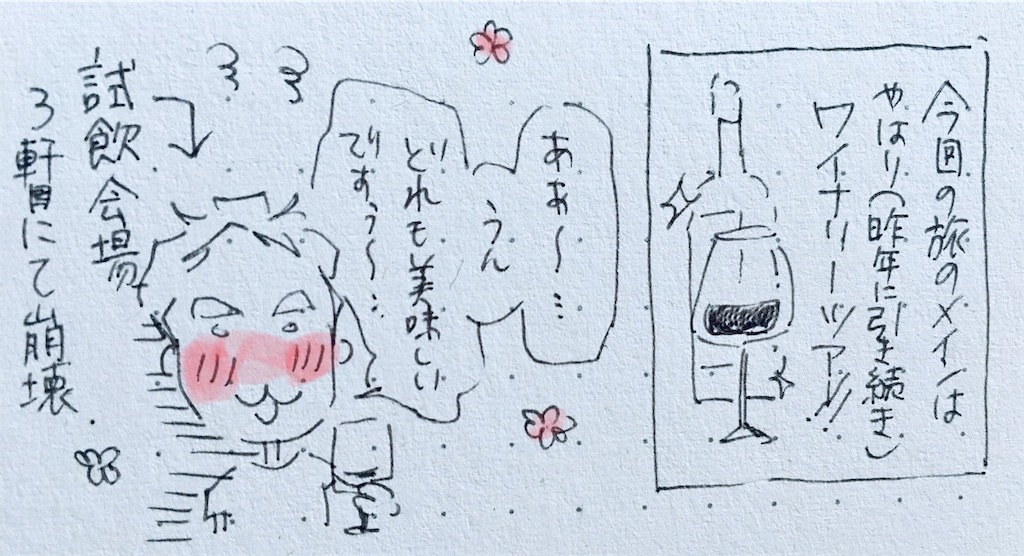 今回の旅のメインは
やはり(昨年に引き続き)
ワイナリーツアー!!
ああ〜…
うん
どれも美味しい
ですぅ〜…
試飲会場
3軒目にて崩壊